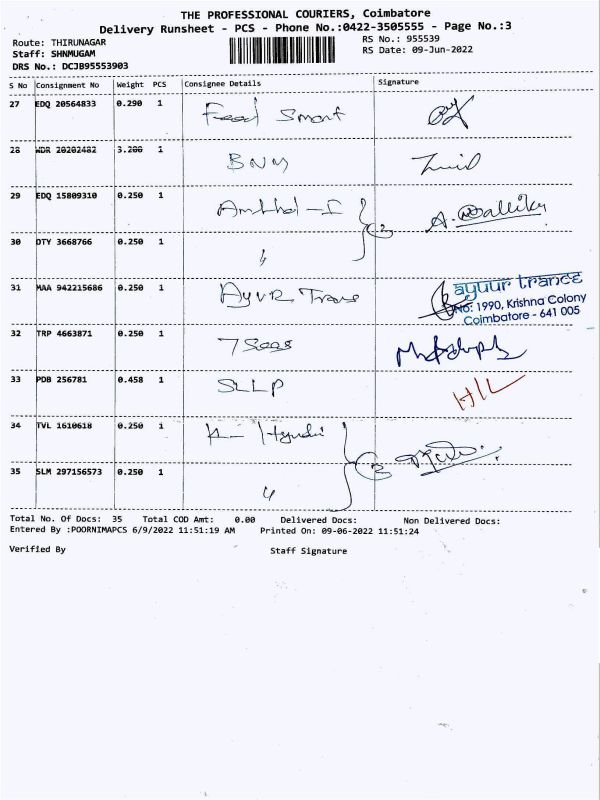 THE PROFESSIONAL COURIERS, Coimbatore
Delivery Runsheet - PCS - Phone No.:0422-3505555 - Page No.:3
Route: THIRUNAGAR RS No.: 955539
Staff: SHNMUGAM RS Date: 09-Jun-2022
DRS No.: DCJB95553903
S No Consignment No Weight PCS Consignee Details Signature
27 EDQ 20564833 0.290 1 Food Smart
28 WDR 20202482 3.200 1 BNM
29 EDQ 15809310 0.250 1 A.
30 DTY 3668766 0.250 1 2
31 MAA 942215686 0.250 1 Ayur Trans ayuur trance
No: 1990, Krishna Colony
Coimbatore - 641 005
32 TRP 4663871 0.250 1 7 Seas
33 PDB 256781 0.458 1 SLLP HIL
34 TVL 1610618 0.250 1 Hyundai
35 SLM 297156573 0.250 1 2
Total No. Of Docs: 35 Total COD Amt: 0.00 Delivered Docs: Non Delivered Docs:
Entered By :POORNIMAPCS 6/9/2022 11:51:19 AM Printed On: 09-06-2022 11:51:24
Verified By Staff Signature